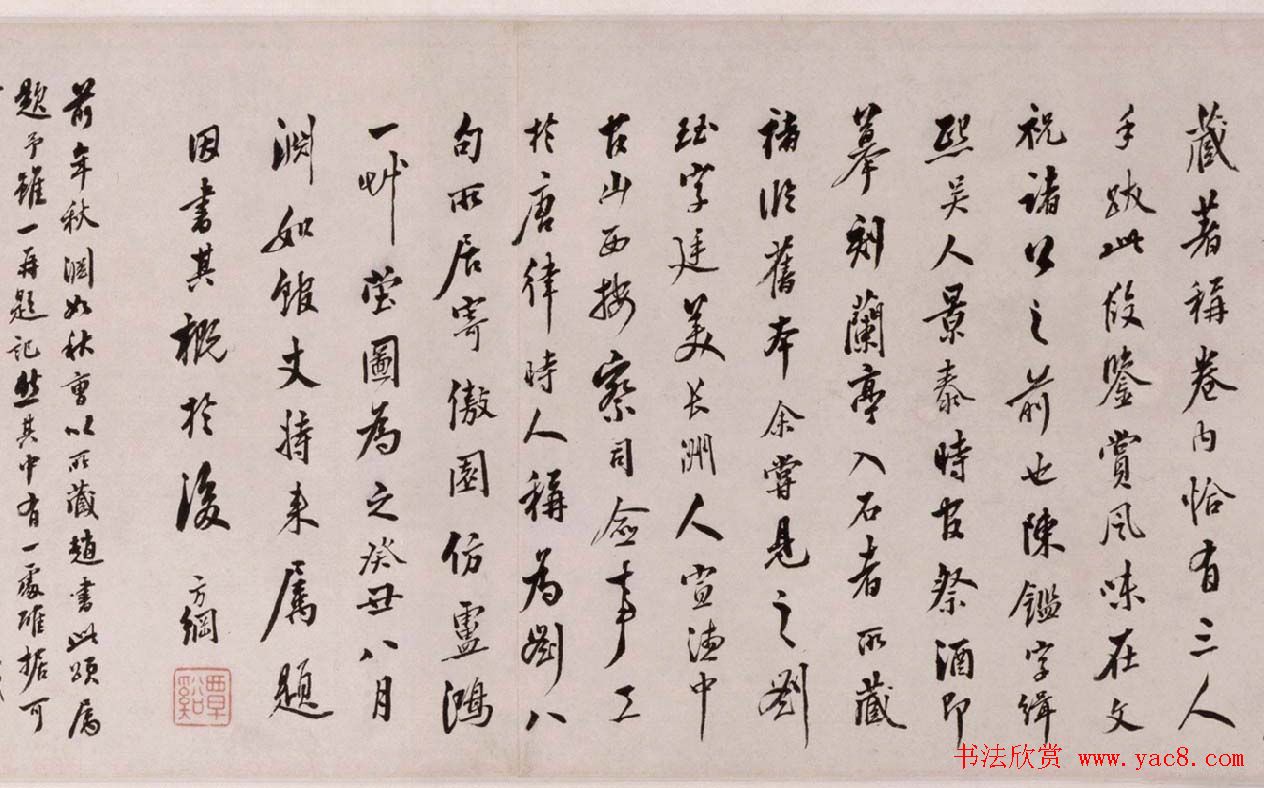 藏著稱卷內恰有三人
手跋此段鑒賞風味在文
祝諸公之前也陳鑑字緝
熙吳人景泰時官祭酒即
摹刻蘭亭入石者所藏
褚臨舊本余嘗見之劉
珏字廷美長洲人宣德中
官山西按察司僉事工
於唐律時人稱為劉八
句所居寄傲園仿盧鴻
一艸堂圖為之癸丑八月
淵如館丈持來屬題
因書其概於後 方綱
覃谿
前年秋淵如秋曹以所藏趙書此頌屬
題予雖一再題記然其中有一處確據可
书法欣赏 www.yac8.com